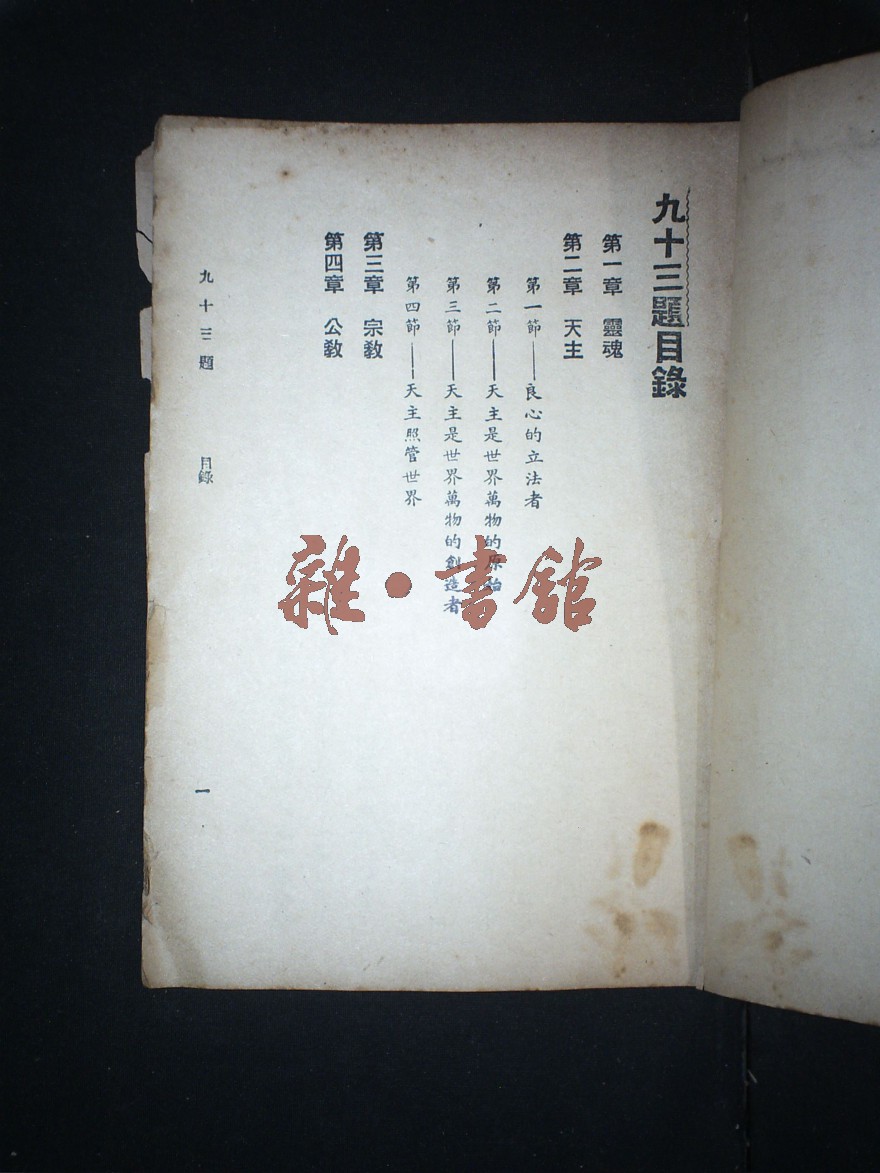 九十三題目錄
第一章　靈魂
第二章　天主
第一節——良心的立法者
第二節——天主是世界萬物的原始
第三節——天主是世界萬物的創造者
第四節——天主照管世界
第三章　宗教
第四章　公教
九十三題　目錄　一
雜·書館